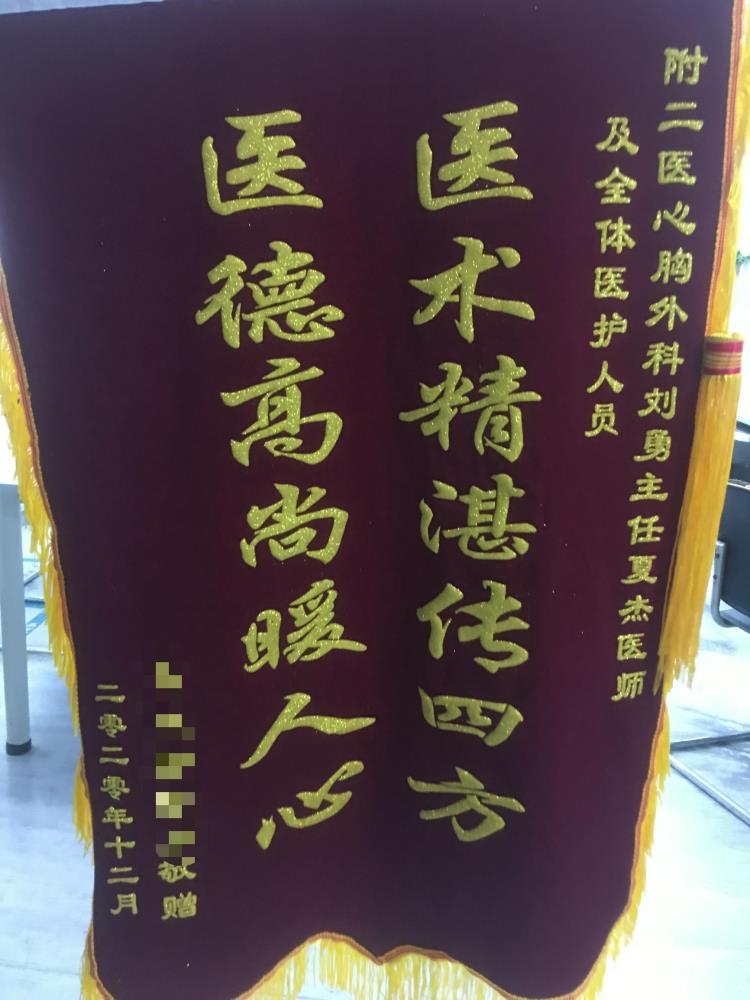 附二医心胸外科刘勇主任夏杰医师
及全体医护人员
医术精湛传四方
医德高尚暖人心
敬赠
二零二零年十二月